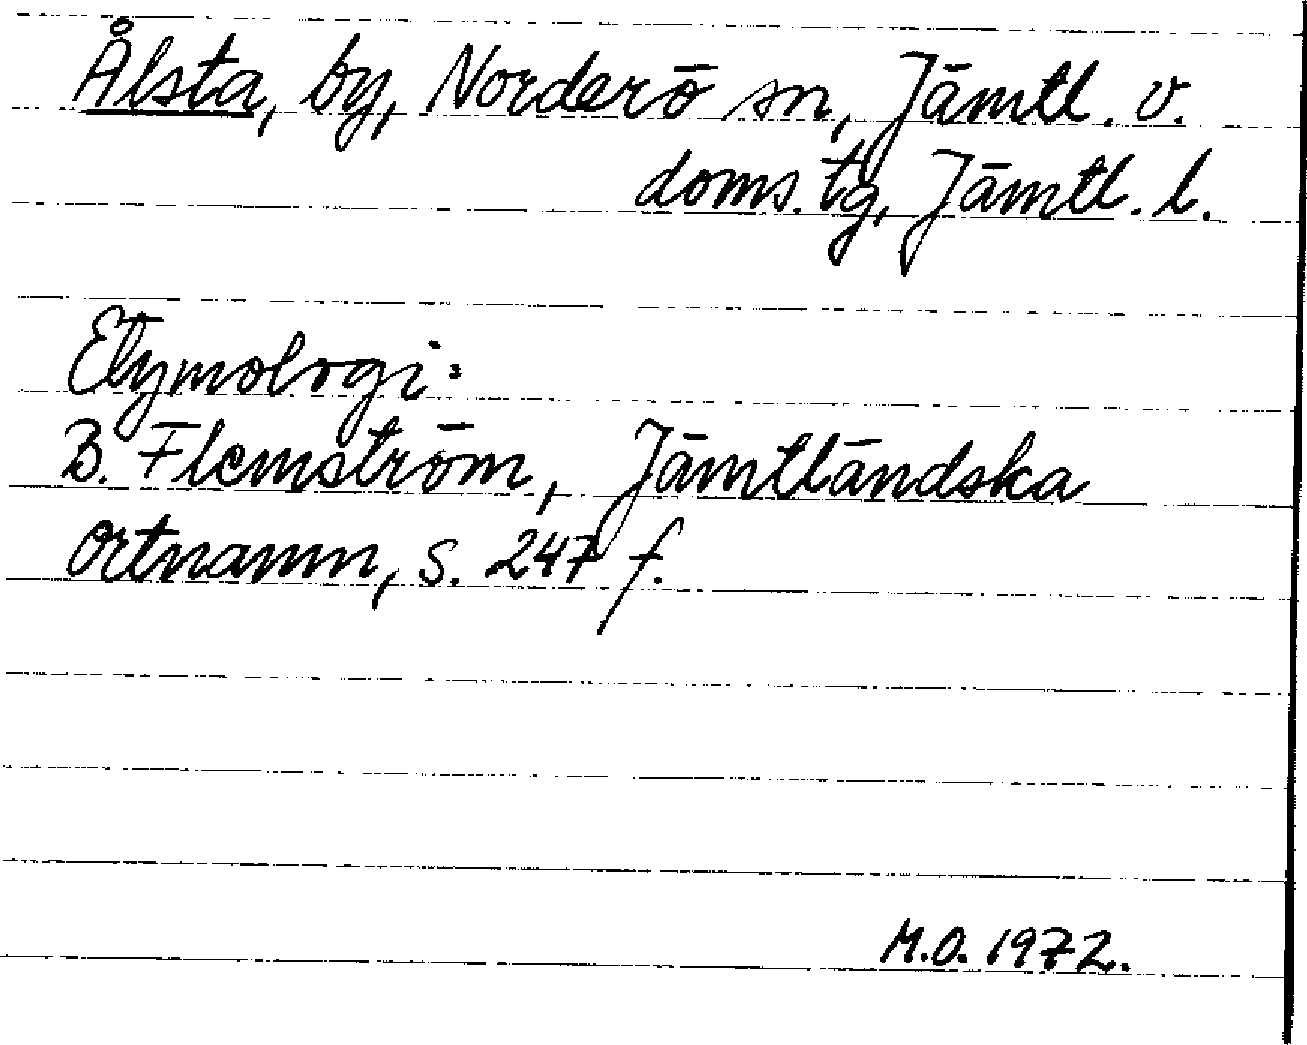 Ålsta, by, Norderö sn, Jämtl. v.
doms. tg, Jämtl. l.
Etymologi:
B. Flemström, Jämtländska
ortnamn, s. 247 f.
M.O. 1972.